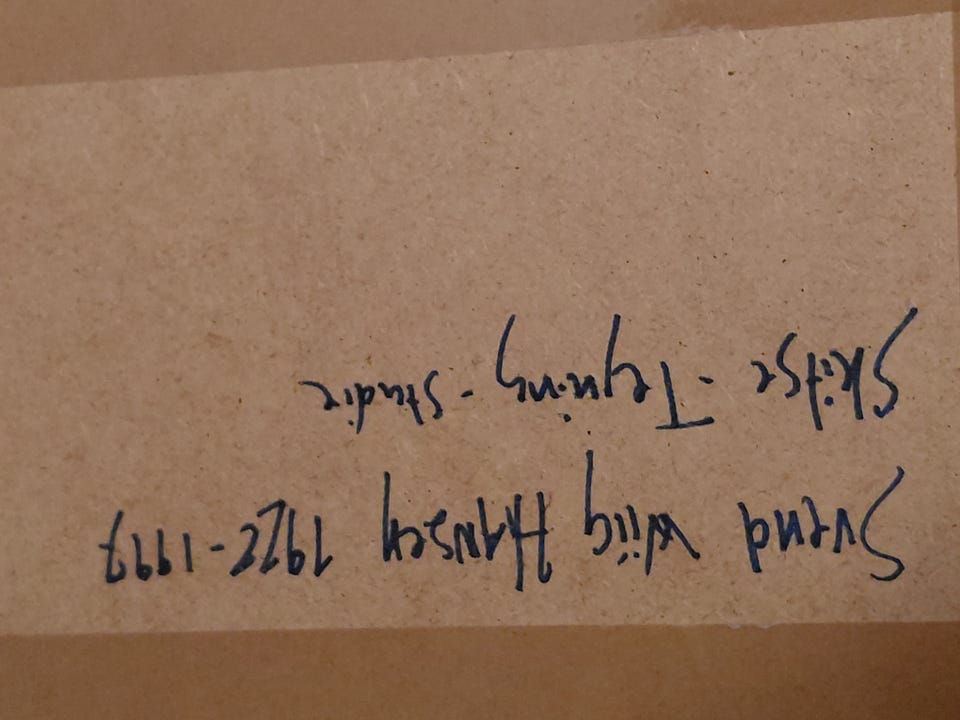 Svend Wiig Hansen 1922-1997
Skitse - Tegning - studie